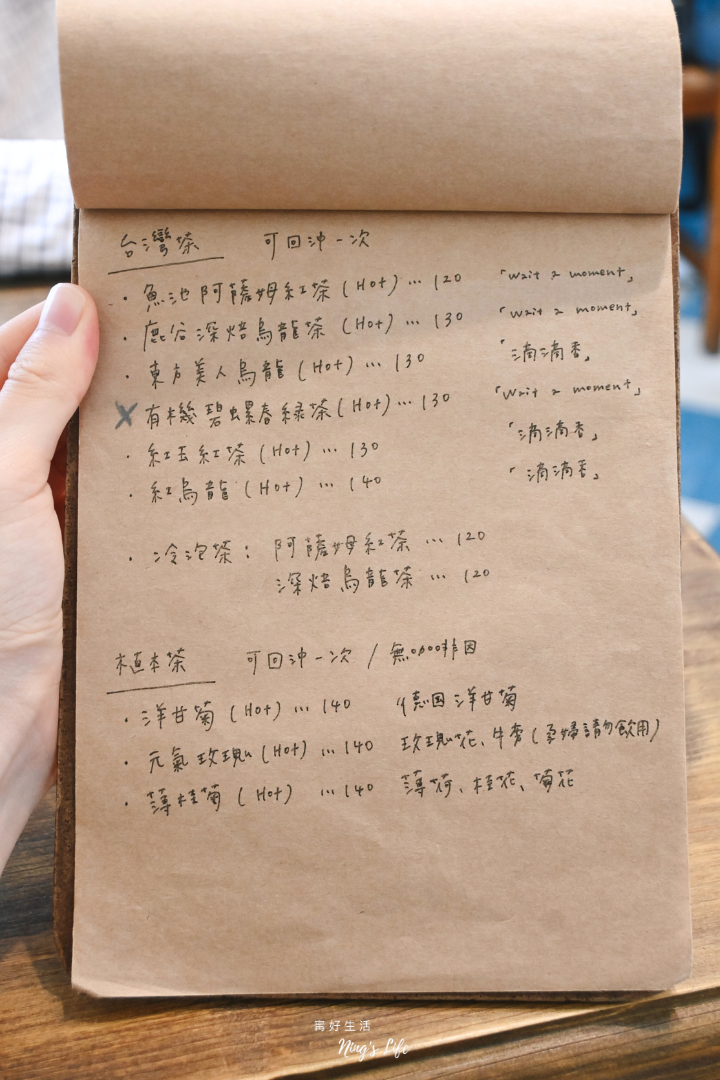 台灣茶 可回沖一次
・魚池阿薩姆紅茶(Hot)…120 「wait a moment」
・鹿谷深焙烏龍茶(Hot)…130 「wait a moment」
・東方美人烏龍(Hot)…130 「滴滴香」
✕有機碧螺春綠茶(Hot)…130 「wait a moment」
・紅玉紅茶(Hot)…130 「滴滴香」
・紅烏龍(Hot)…140 「滴滴香」
・冷泡茶：阿薩姆紅茶…120
深焙烏龍茶…120
植本茶 可回沖一次/無咖啡因
・洋甘菊(Hot)…140 德国洋甘菊
・元氣玫瑰(Hot)…140 玫瑰花、牛蒡(孕婦請勿飲用)
・薄桂菊(Hot) …140 薄荷、桂花、菊花
甯好生活
Ning's Life